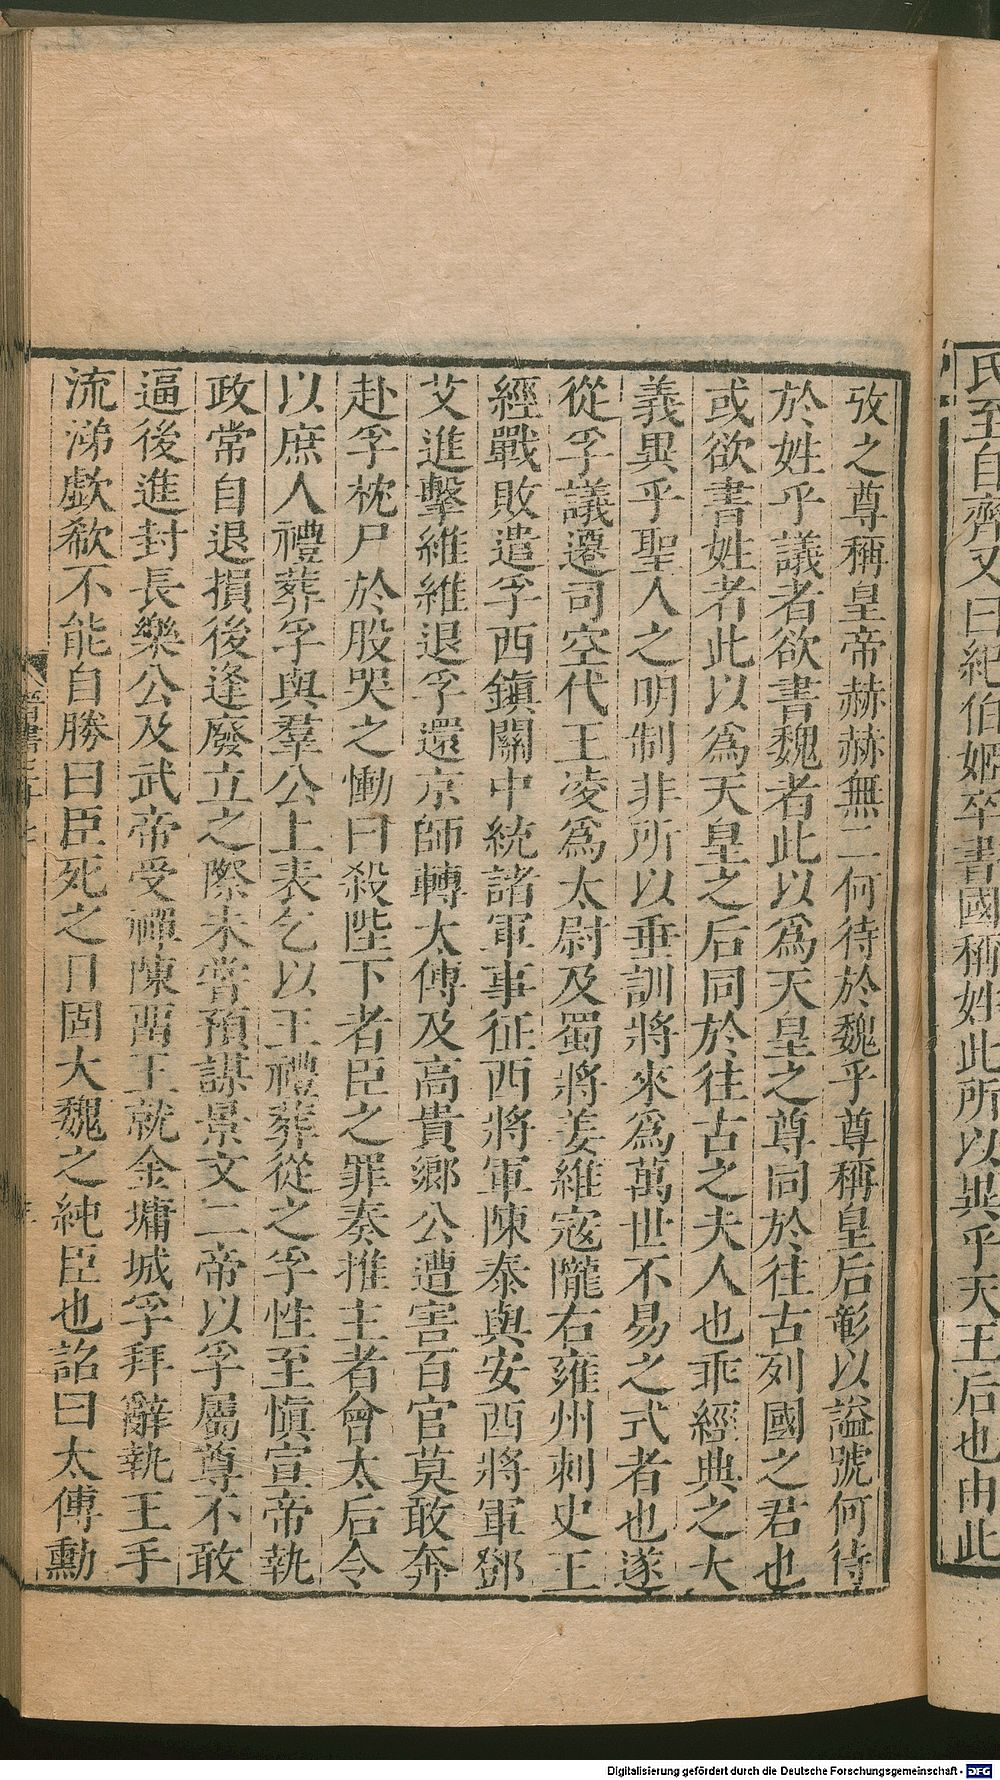 氏至自齊又曰紀伯姬卒書國稱姓此所以異乎天王后也由此
攷之尊稱皇帝赫赫無二何待於魏乎尊稱皇后彰以謚號何待
於姓乎議者欲書魏者此以爲天皇之尊同於往古列國之君也
或欲書姓者此以爲天皇之后同於往古之夫人也乖經典之大
義異乎聖人之明制非所以垂訓將來爲萬世不易之式者也遂
從孚議遷司空代王凌爲太尉及蜀將姜維寇隴右雍州刺史王
經戰敗遣孚西鎮關中統諸軍事征西將軍陳泰與安西將軍鄧
艾進擊維維退孚還京師轉太傅及高貴鄉公遭害百官莫敢奔
赴孚枕尸於股哭之慟曰殺陛下者臣之罪奏推主者會太后令
以庶人禮葬孚與羣公上表乞以王禮葬從之孚性至愼宣帝執
政常自退損後逢廢立之際未嘗預謀景文二帝以孚屬尊不敢
逼後進封長樂公及武帝受禪陳畱王就金墉城孚拜辭執王手
流涕歔欷不能自勝曰臣死之日固大魏之純臣也詔曰太傅勳
晉書
Digitalisierung gefördert durch die Deutsche Forschungsgemeinschaft - DFG